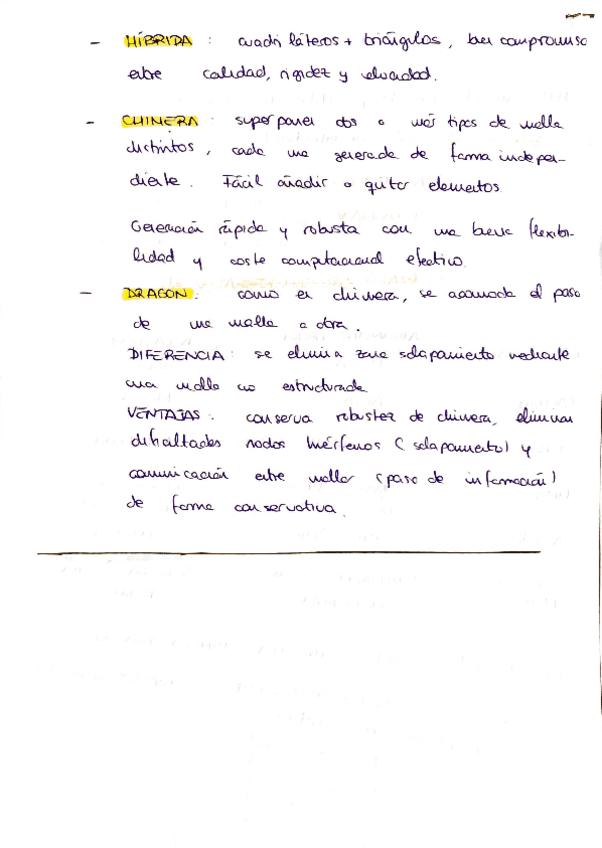 - HÍBRIDA : cuadriláteros + triángulos, buen compromiso
entre calidad, rigidez y velocidad.
- CHIMERA : superponer dos o más tipos de malla
distintos, cada una generada de forma indepen-
diente. Fácil añadir o quitar elementos.
Generación rápida y robusta con una buena flexibi-
lidad y coste computacional efectivo.
- DRAGON : como en chimera, se acomoda el paso
de una malla a otra.
DIFERENCIA : se elimina zona solapamiento mediante
una malla no estructurada
VENTAJAS : conserva robustez de chimera, eliminan
dificultades nodos huérfanos (solapamiento) y
comunicación entre mallas (paso de información)
de forma conservativa.